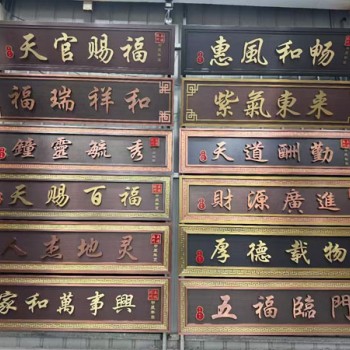 天官赐福
福瑞祥和
鐘靈毓秀
天赐百福
人杰地灵
家和萬事興
惠風和畅
紫氣東来
天道酬勤
財源廣進
厚德载物
五福臨門